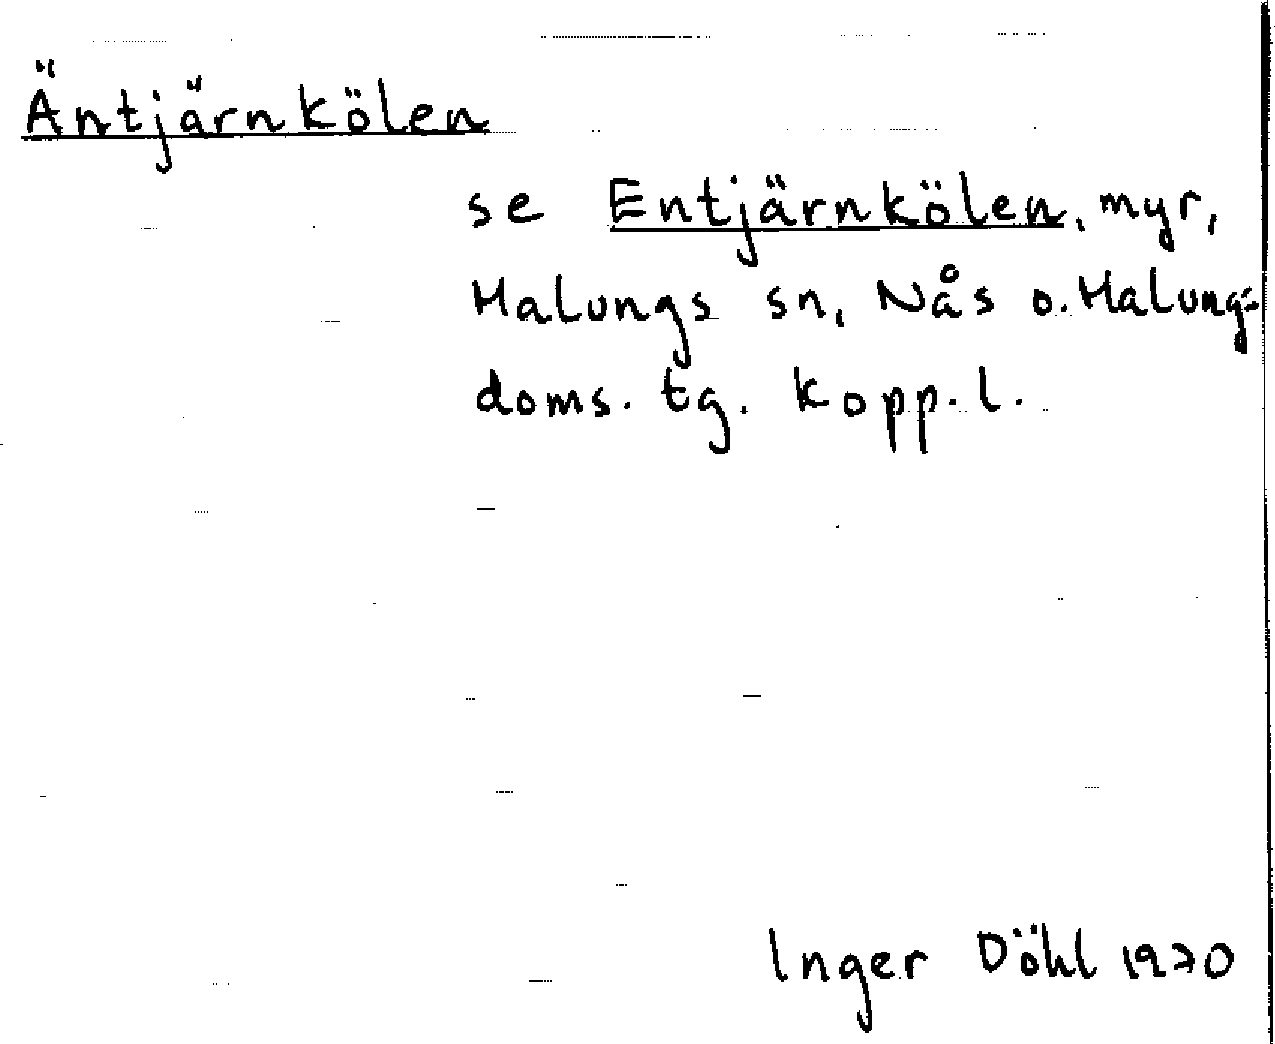 Äntjärnkölen
se Entjärnkölen, myr,
Malungs sn, Nås o. Malungs-
doms. tg. Kopp. l.
Inger Döhl 1970